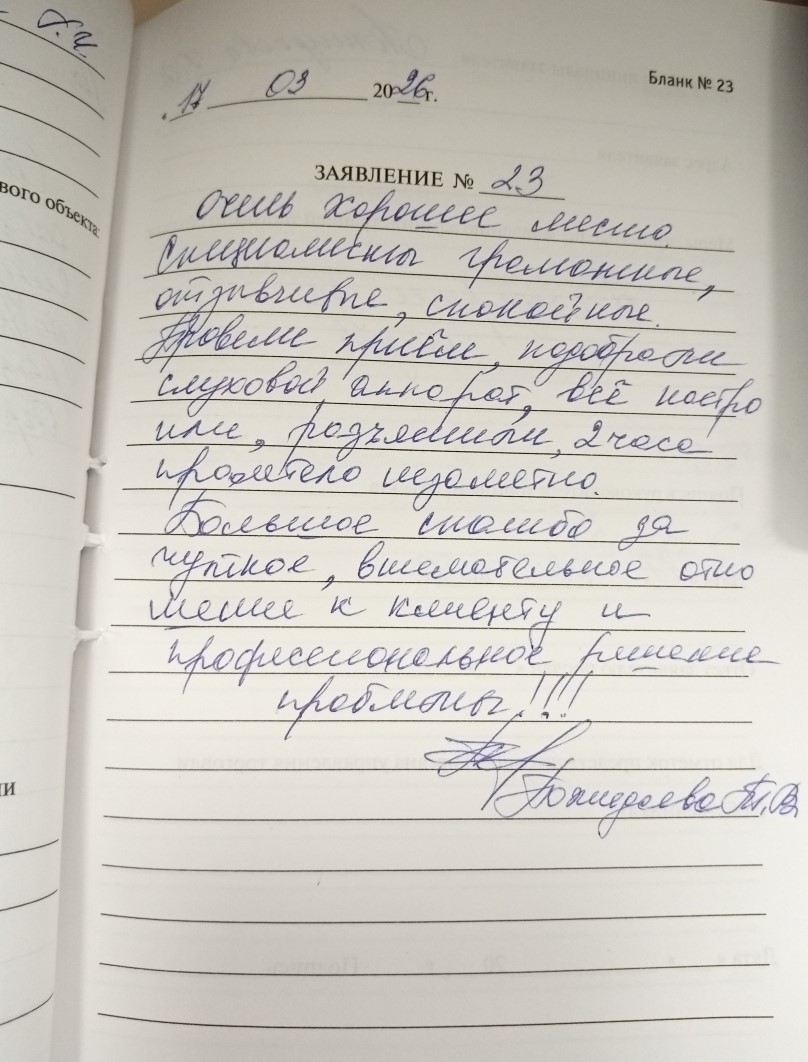 вого объекта:
ии
Бланк № 23
17 03 2026г.
ЗАЯВЛЕНИЕ № 23
Очень хорошее место.
Специалисты грамотные,
отзывчивые, спокойные.
Провели приём, подобрали
слуховой аппарат, всё настро
или, разъяснили, 2 часа
пролетело незаметно.
Большое спасибо за
чуткое, внимательное отно
шение к клиенту и
профессиональное решение
проблемы!!!!